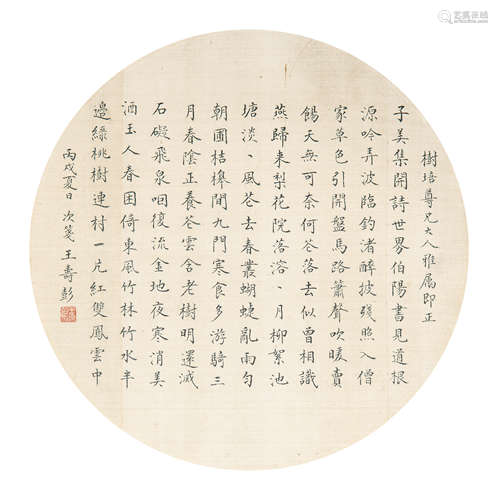 艺狐在线
樹培尊兄大人雅屬即正
子美集開詩世界伯陽書見道根
源吟弄波臨釣渚醉披殘照入僧
家草色引開盤馬路簫聲吹暖賣
餳天無可奈何花落去似曾相識
燕歸來梨花院落溶、月柳絮池
塘淡、風花去春叢蝴蝶亂雨勻
朝圃桔槔閒九門寒食多游騎三
月春陰正養花雲含老樹明還滅
石礙飛泉咽復流金地夜寒消美
酒玉人春困倚東風竹林竹水半
邊綠桃樹連村一片紅雙鳳雲中
丙戌夏日次箋王壽彭